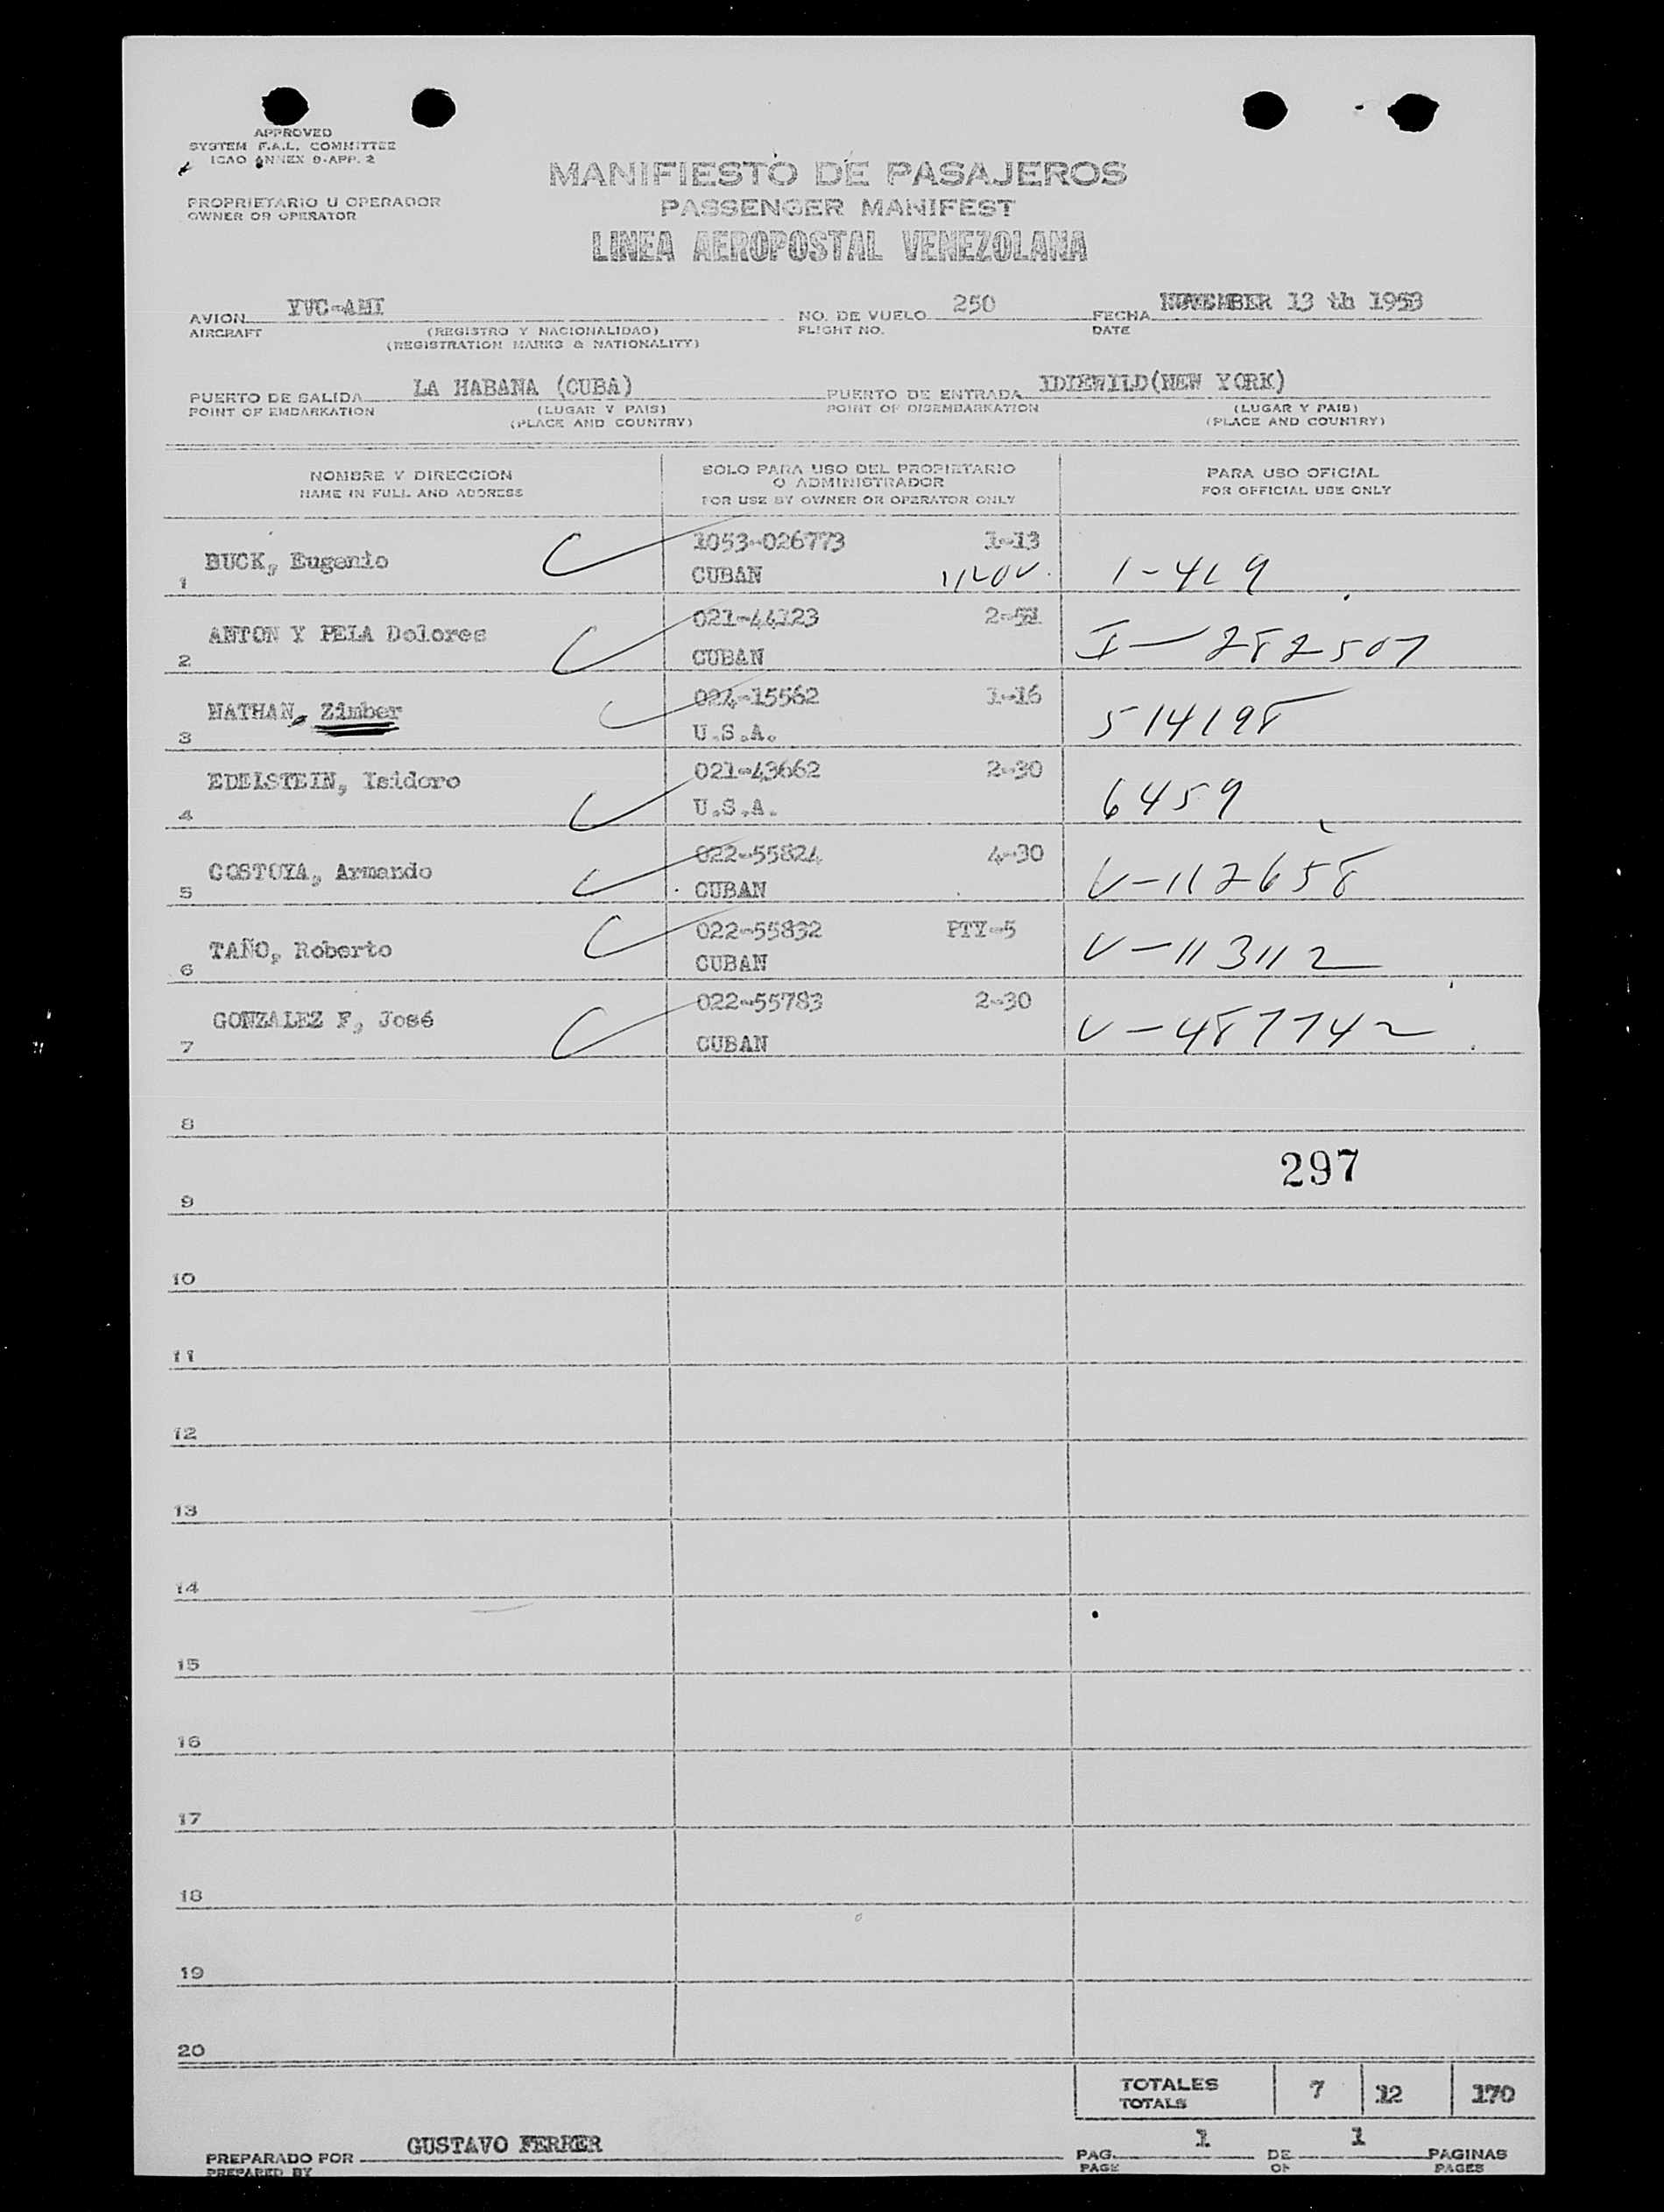 APPROVED
SYSTEM F.A.L. COMMITTEE
ICAO ANNEX 9-APP. 2
MANIFIESTO DE PASAJEROS
PROPRIETARIO U OPERADOR
OWNER OR OPERATOR
PASSENGER MANIFEST
LINEA AEROPOSTAL VENEZOLANA
AVION YVC-AMI NO. DE VUELO 250 FECHA NOVEMBER 13 th 1953
AIRCRAFT (REGISTRO Y NACIONALIDAD) FLIGHT NO. DATE
(REGISTRATION MARKS & NATIONALITY)
PUERTO DE SALIDA LA HABANA (CUBA) PUERTO DE ENTRADA IDLEWILD(NEW YORK)
POINT OF EMBARKATION (LUGAR Y PAIS) POINT OF DISEMBARKATION (LUGAR Y PAIS)
(PLACE AND COUNTRY) (PLACE AND COUNTRY)
NOMBRE Y DIRECCION
NAME IN FULL AND ADDRESS
SOLO PARA USO DEL PROPIETARIO
O ADMINISTRADOR
FOR USE BY OWNER OR OPERATOR ONLY
PARA USO OFICIAL
FOR OFFICIAL USE ONLY
1 BUCK, Eugenio 1053-026773 1-13
CUBAN 1-419
2 ANTON Y PELA Dolores 021-44123
CUBAN I-282507
3 NATHAN, Zimber 024-15562 1-16
U.S.A. 514198
4 EDELSTEIN, Isidoro 021-43662 2-30
U.S.A. 6459
5 GOSTOYA, Armando 022-55824 4-30
CUBAN V-112658
6 TAÑO, Roberto 022-55832 PTY-5
CUBAN V-113112
7 GONZALEZ F, José 022-55783 2-30
CUBAN V-487742
8
297
9
10
11
12
13
14
15
16
17
18
19
20
TOTALES 7 12 170
TOTALS
PREPARADO POR GUSTAVO FERRER PAG. 1 DE 1 PAGINAS
PREPARED BY PAGE OF PAGES